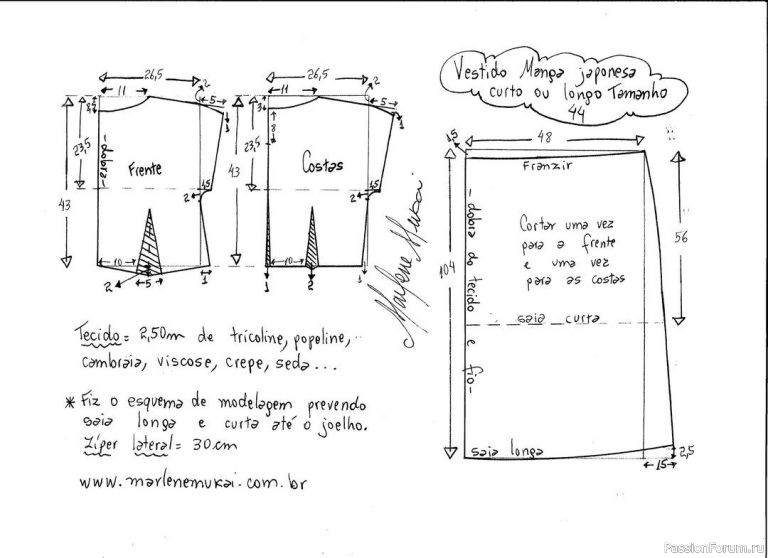 Vestido Manga japonesa
curto ou longo Tamanho
44
26,5
2
11
5
8
1
23,5
43
-dobra-
Frente
15
2
10
5
2
1
26,5
2
11
5
3
8
1
23,5
43
Costas
15
2
10
1
2
1
Marlene Mukai
1,5
48
Franzir
- dobra do tecido e fio -
Cortar uma vez
para a frente
e uma vez
para as costas
56
104
saia curta
saia longa
15
2,5
Tecido = 2,50m de tricoline, popeline,
cambraia, viscose, crepe, seda...
* Fiz o esquema de modelagem prevendo
saia longa e curta até o joelho.
Zíper lateral = 30cm
www.marlenemukai.com.br
PassionForum.ru